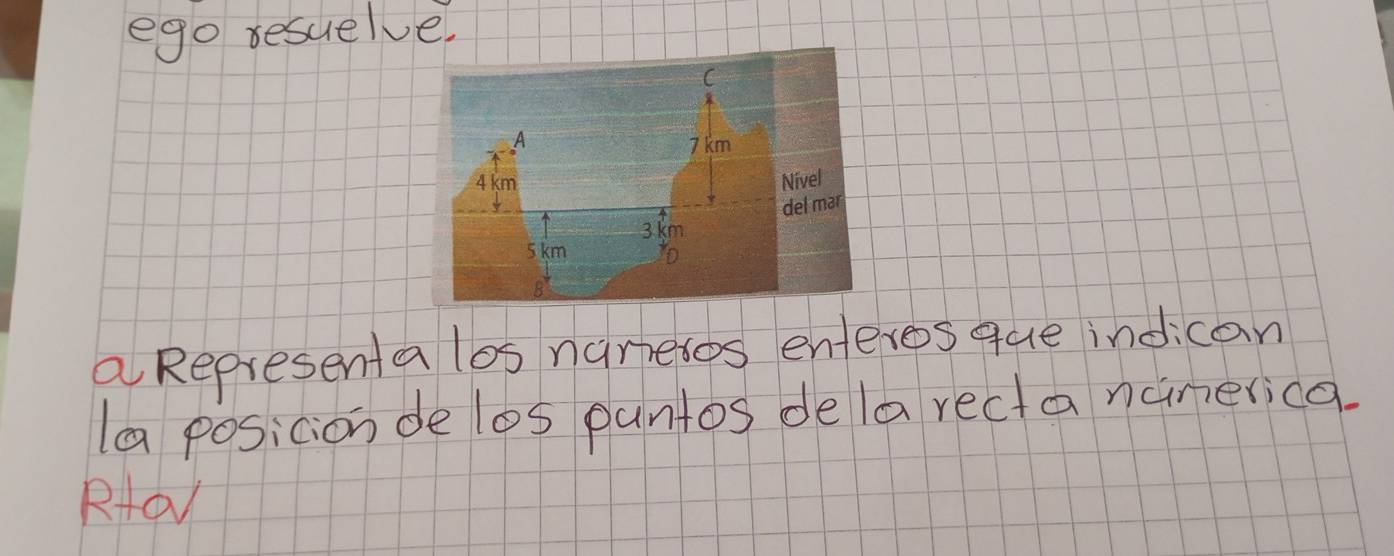 ego resuelve.
C
A
7 km
4 km
Nivel
del mar
3 km
5 km
D
B
a Representa los números enteros que indican
la posición de los puntos de la recta númerica.
Rta/